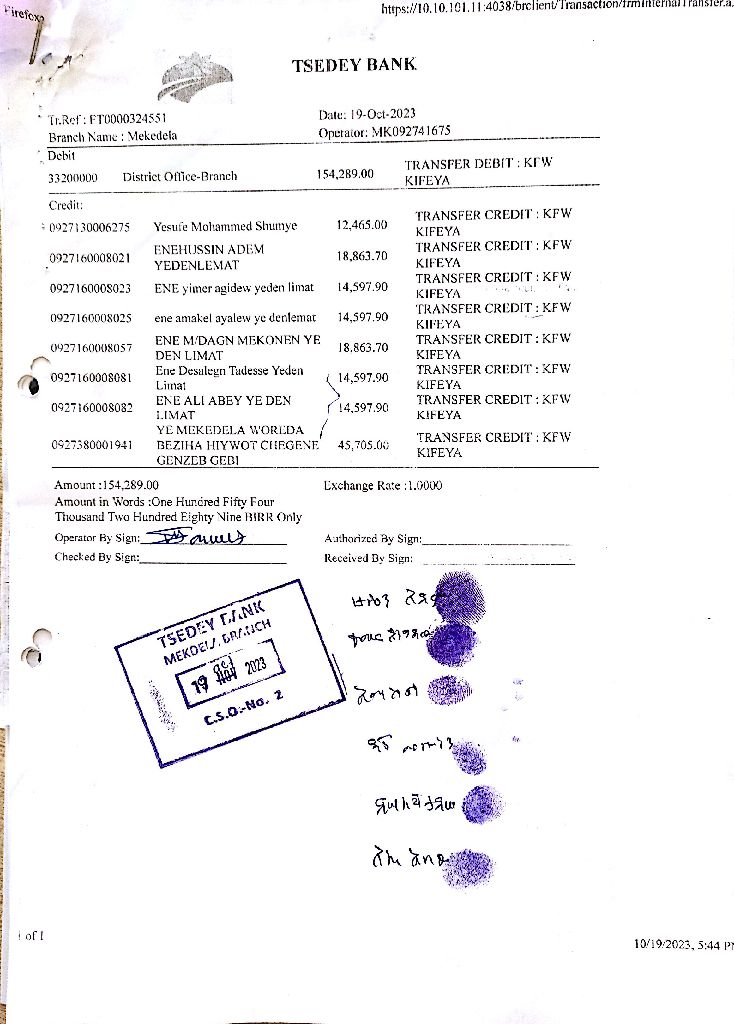 Firefox
https://10.10.101.11:4038/brclient/Transaction/frmInternalTransfer.a
TSEDEY BANK
Tr.Ref : FT0000324551 Date: 19-Oct-2023
Branch Name : Mekedela Operator: MK092741675
Debit
33200000 District Office-Branch 154,289.00 TRANSFER DEBIT : KFW
KIFEYA
Credit:
0927130006275 Yesufe Mohammed Shumye 12,465.00 TRANSFER CREDIT : KFW
KIFEYA
0927160008021 ENEHUSSIN ADEM
YEDENLEMAT 18,863.70 TRANSFER CREDIT : KFW
KIFEYA
0927160008023 ENE yimer agidew yeden limat 14,597.90 TRANSFER CREDIT : KFW
KIFEYA
0927160008025 ene amakel ayalew ye denlemat 14,597.90 TRANSFER CREDIT : KFW
KIFEYA
0927160008057 ENE M/DAGN MEKONEN YE
DEN LIMAT 18,863.70 TRANSFER CREDIT : KFW
KIFEYA
0927160008081 Ene Desalegn Tadesse Yeden
Limat 14,597.90 TRANSFER CREDIT : KFW
KIFEYA
0927160008082 ENE ALI ABEY YE DEN
LIMAT 14,597.90 TRANSFER CREDIT : KFW
KIFEYA
0927380001941 YE MEKEDELA WOREDA
BEZIHA HIYWOT CHEGENE
GENZEB GEBI 45,705.00 TRANSFER CREDIT : KFW
KIFEYA
Amount :154,289.00 Exchange Rate :1.0000
Amount in Words :One Hundred Fifty Four
Thousand Two Hundred Eighty Nine BIRR Only
Operator By Sign: Authorized By Sign:
Checked By Sign: Received By Sign:
TSEDEY BANK
MEKDELA BRANCH
19 2023
C.S.O.-No. 2
1 of 1
10/19/2023, 5:44 PM